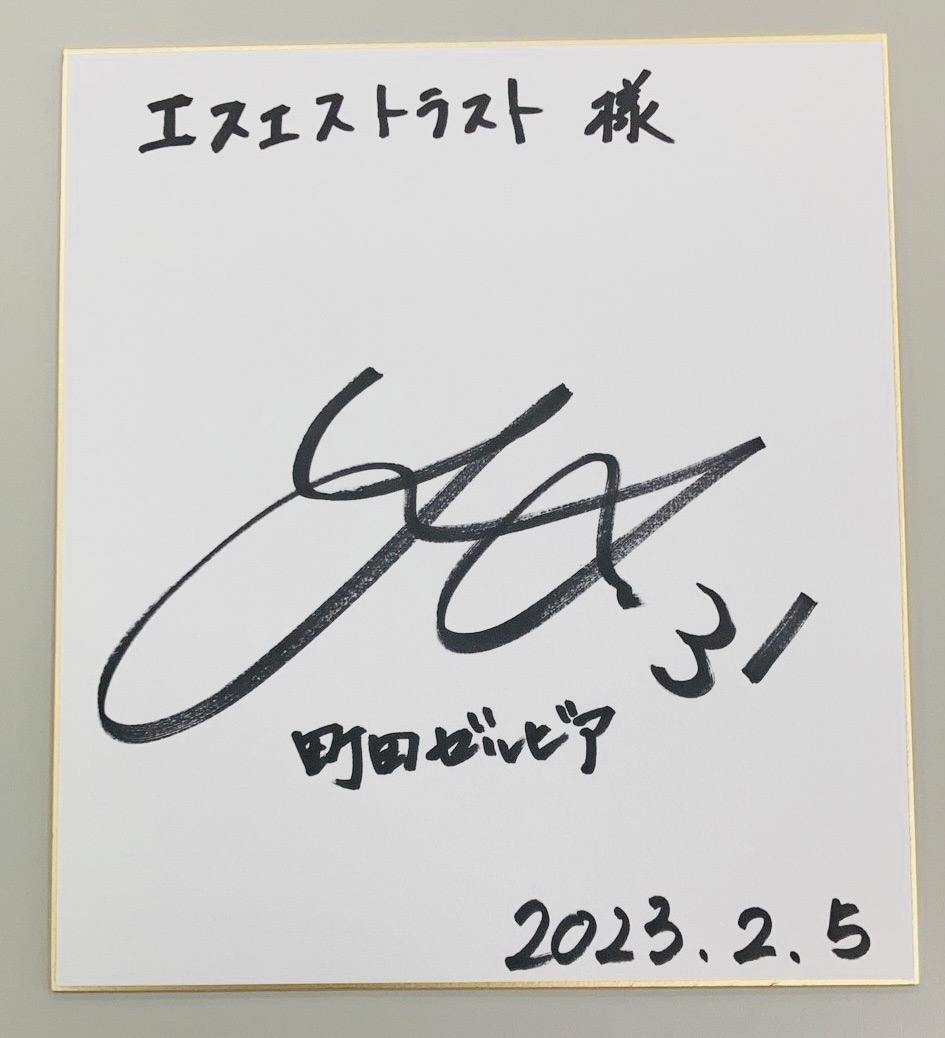 エスエストラスト 様
31
町田ゼルビア
2023.2.5